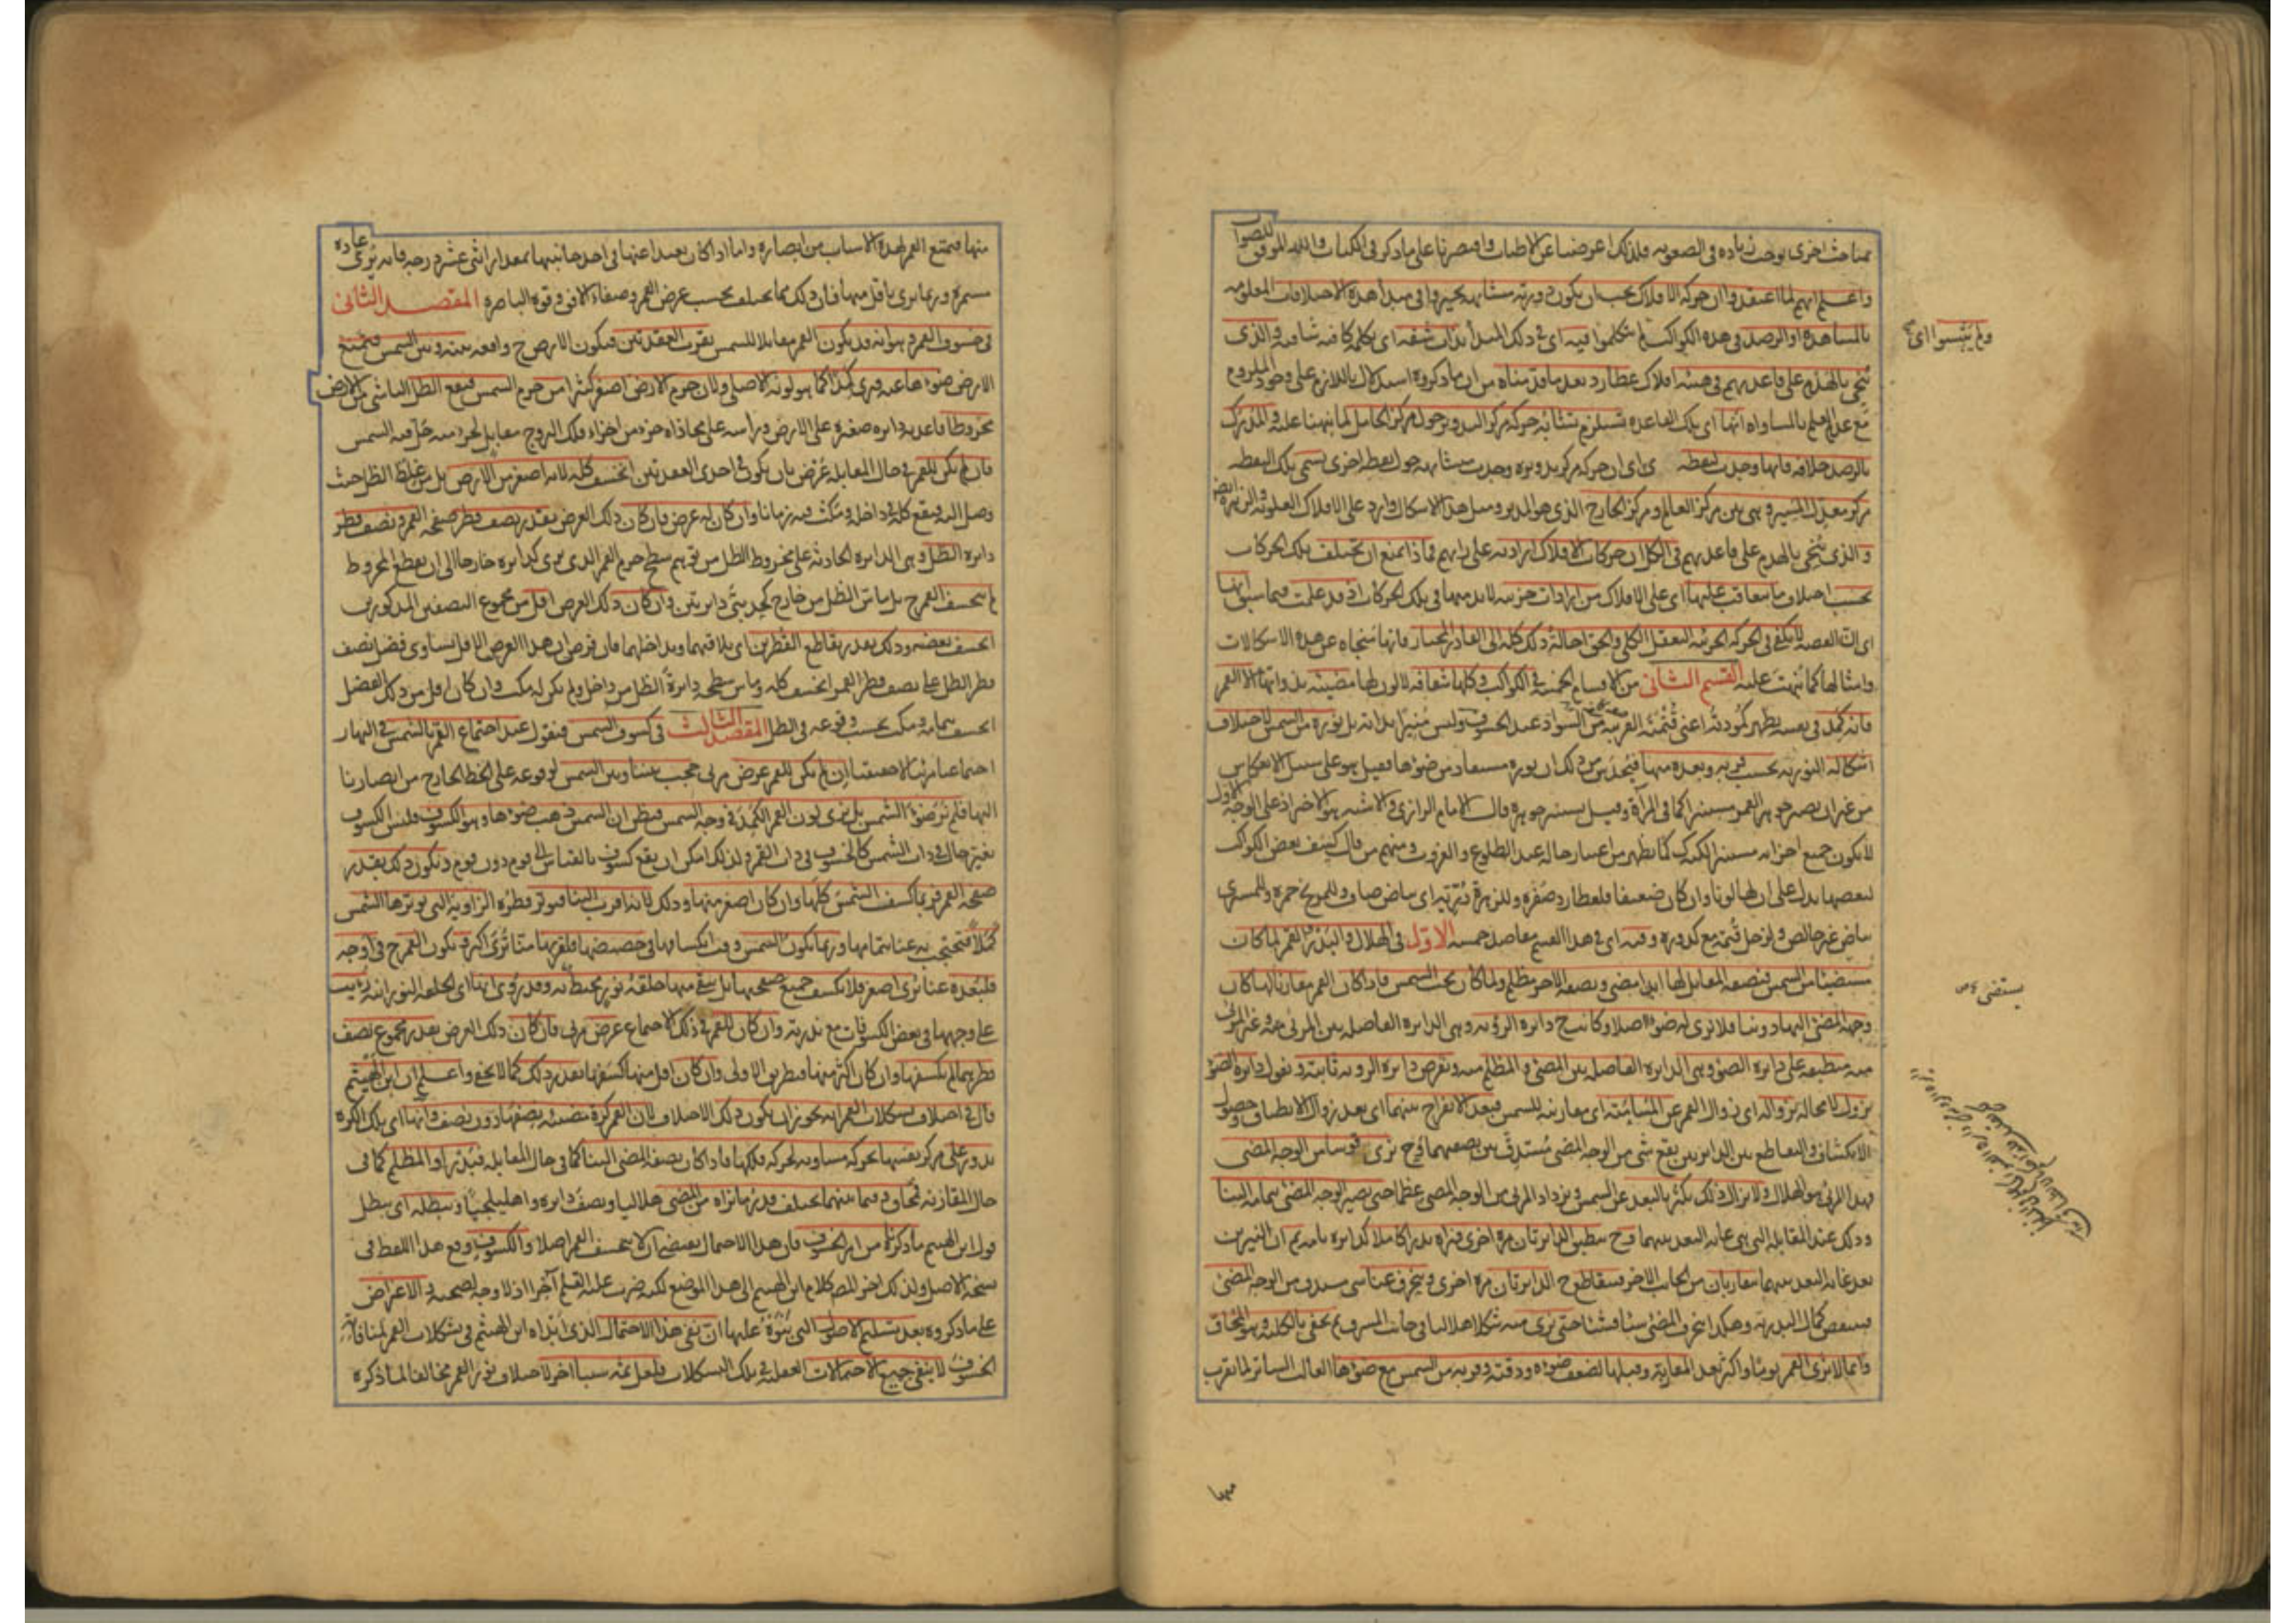 مباحث اخرى يوجب زيادة في الصعوبة فلذلك اعرضنا عن الاطناب واقتصرنا على ما ذكر في الكتاب والله الموفق للصواب
واعلم انهم لما اعتقدوا ان حركة الافلاك يجب ان يكون دورية متشابهة تحيروا في مبدأ هذه الاختلافات المعلومة
بالمشاهدة او الرصد في هذه الكواكب لم يتكلموا فيه اى في ذلك المبدأ ببنت شفة اى بكلمة كافية شافية والذى
ولم ينبسوا اى
ينحى بالهدم على قاعدتهم في هيئة افلاك عطارد بعد ما قدمناه من ان ما ذكروه استدلال باللازم على وجود الملزوم
مع عدم العلم بالمساواة انها اى تلك القاعدة تستلزم تشابه حركة مركز التدوير حول مركز الحامل لما نبهنا عليه والمدرك
بالرصد خلافه فانها وجدت لنقطة اى ان حركة مركز تدويره وجدت متشابهة حول نقطة اخرى تسمى تلك النقطة
مركز معدل المسير وهى بين مركز العالم ومركز الخارج الذى هو المدير ومثل هذا الاشكال وارد على الافلاك العلوية والزهرة ايضا
والذى ينحى بالهدم على قاعدتهم في الكل ان حركات الافلاك ارادية على رايهم فماذا يمنع ان تختلف تلك الحركات
بحسب اختلاف ما يتعاقب عليها اى على الافلاك من ارادات جزئية لا بد منها في تلك الحركات اذ قد علمت فيما سبق انها
اى ان القصة لا يكفى في الحركة الجزئية التعقل الكلى والحق احالة ذلك كله الى القادر المختار فانها منجاة عن هذه الاشكالات
وامثالها كما نبهت عليه القسم الثانى من الاقسام الخمسة في الكواكب وكلها شفافة لا لون لها مضيئة بذواتها الا القمر
فانه كمد في نفسه يظهر كمودته اعنى قتمته القريبة من السواد عند الخسوف وليس منيرا بذاته بل نوره من الشمس لاختلاف
اشكاله النورية بحسب قربه وبعده منها فيحدس من ذلك ان نوره مستفاد من ضوءها فقيل هو على سبيل الانعكاس
من غير ان يصير جوهر القمر مستنيرا كما في المرآة وقيل يستنير جوهره قال الامام الرازى والاشبه هو الاخير اذ على الوجه الاول
لا يكون جميع اجزائه مستنيرا لكنه كذلك كما يظهر من اعتبار حاله عند الطلوع والغروب ومنهم من قال كسف بعض الكواكب
لبعضها يدل على ان لها لونا وان كان ضعيفا فلعطارد صفرة وللزهرة درية اى بياض صاف وللمريخ حمرة وللمشترى
بياض غير خالص ولزحل قتمة مع كدورة وفيه اى في هذا القسم مقاصد خمسة الاول في الهلال والبدر القمر لما كان
مستضيئا من الشمس فنصفه المقابل لها ابدا مضئ ونصفه الاخر مظلم ولما كان تحت الشمس فاذا كان القمر مقارنا لها كان
يستضئ
وجهه المضئ اليها دوننا فلا نرى له ضوءا اصلا وكانت ح دائرة الرؤية وهى الدائرة الفاصلة بين المرئى منه وغير المرئى
منه منطبقة على دائرة الضوء وهى الدائرة الفاصلة بين المضئ والمظلم منه ونفرض دائرة الرؤية ثابتة ونقول دائرة الضوء
تزول لا محالة بزواله اى زوال القمر عن المسامتة اى مقارنته للشمس فبعد الانفراج بينهما اى بعد زوال الانطباق وحصول
الانكشاف والتقاطع بين الدائرتين يقع شئ من الوجه المضئ مستدق بين نصفيهما فح نرى قوسا من الوجه المضئ
فهذا المرئى هو الهلال ولا يزال ذلك يكثر بالبعد عن الشمس ويزداد المرئى من الوجه المضئ عظما حتى يصير الوجه المضئ بتمامه الينا
وذلك عند المقابلة التى هى غاية البعد بينهما وح ينطبق الدائرتان مرة اخرى فنراه بدرا كاملا كدائرة تامة ثم ان النيرين
بعد غاية البعد بينهما يتقاربان من الجانب الاخر فيتقاطع ح الدائرتان مرة اخرى وينحرف عنا شئ مستدق من الوجه المضئ
فينقص كمال البدرية وهكذا ينحرف المضئ شيئا فشيئا حتى يرى منه شكلا هلاليا في جانب المشرق ثم يخفى بالكلية وهو المحاق
وانما لا يرى القمر يوما واكثر بعد المقارنة وقبلها لضعف ضوئه ودقته وقربه من الشمس مع ضوءها الغالب الساتر لما يقرب
منها
منها فيمتنع القمر لهذه الاسباب من ابصاره واما اذا كان بعيدا عنها في احد جانبيها بمقدار اثنى عشر درجة فانه يرى عادة
مستمرة وربما يرى باقل منها فان ذلك مما يختلف بحسب عرض القمر وصفاء الافق وقوة الباصرة المقصد الثانى
في خسوف القمر وهو انه قد يكون القمر مقابلا للشمس بقرب العقدتين فيكون الارض ح واقعة بينه وبين الشمس فتمنع
الارض ضوءها عنه فيرى كمدا كما هو لونه الاصلى ولان جرم الارض اصغر كثيرا من جرم الشمس فيقع الظل الناشى من الارض
مخروطا قاعدته دائرة صغيرة على الارض ورأسه على محاذاة جزء من اجزاء فلك البروج مقابل لجزء منه حل فيه الشمس
فان لم يكن للقمر في حال المقابلة عرض بان يكون في احدى العقدتين انخسف كله لانه اصغر من الارض بل من غلظ الظل حيث
وصل اليه فيقع كله في داخله ومكث فيه زمانا وان كان له عرض فان كان ذلك العرض بقدر نصف قطر صفحة القمر ونصف قطر
دائرة الظل وهى الدائرة الحادثة على مخروط الظل من توهم سطح جرم القمر الذى يرى كدائرة خارجا الى ان يقطع المخروط
لم ينخسف القمر ح بل يماس الظل من خارج كجنبتى دائرتين وان كان ذلك العرض اقل من مجموع النصفين المذكورين
انخسف بعضه وذلك بقدر تقاطع القطرين اى تلاقيهما وتداخلهما فان فرض ان هذا العرض الاقل يساوى فضل نصف
قطر الظل على نصف قطر القمر انخسف كله وماس سطحه دائرة الظل من داخل ولم يكن له مكث وان كان اقل من ذلك الفضل
انخسف بتمامه ومكث بحسب وقوعه في الظل المقصد الثالث في كسوف الشمس فنقول عند اجتماع القمر بالشمس في النهار
اجتماعا مرئيا لا حقيقيا ان لم يكن للقمر عرض مرئى حجب بيننا وبين الشمس لوقوعه على الخط الخارج من ابصارنا
اليها فلم نر ضوء الشمس بل نرى لون القمر الكمد في وجه الشمس فيظن ان الشمس ذهب ضوءها وهو الكسوف فليس الكسوف
تغير حال في ذات الشمس كالخسوف في ذات القمر ولذلك امكن ان يقع كسوف بالقياس الى قوم دون قوم ويكون ذلك بقدر
صفحة القمر فربما كسف الشمس كلها وان كان اصغر منها وذلك لانه اقرب الينا فيوتر قطره الزاوية التى يوترها الشمس
كملا فتحتجب به عنا بتمامها وربما يكون الشمس وقت انكسافها في حضيضها فلقربها منا ترى اكبر ويكون القمر ح في اوجه
فلبعده عنا يرى اصغر فلا يكسف جميع صفحتها بل يبقى منها حلقة نور محيطة به وقد روى انها اى الحلقة النورانية رئيت
على وجهها في بعض الكسوفات مع ندرته وان كان للقمر في ذلك الاجتماع عرض مرئى فان كان ذلك العرض بقدر مجموع نصف
قطريهما لم يكسفها وان كان اكثر منها فبطريق الاولى وان كان اقل منها كسفها بقدر ذلك كما لا يخفى واعلم ان ابن الهيثم
قال في اختلاف تشكلات القمر انه يجوز ان يكون ذلك الاختلاف لان القمر كرة مضيئة نصفها دون نصف وانها اى تلك الكرة
تدور على مركز نفسها بحركة مساوية لحركة فلكها فاذا كان نصفه المضئ الينا كما في حال المقابلة فبدر او المظلم كما في
حال المقارنة فمحاق وفيما بينهما يختلف قدر ما نراه من المضئ هلاليا ونصف دائرة واهليلجيا ويبطله اى يبطل
قول ابن الهيثم ما ذكرناه من امر الخسوف فان هذا الاحتمال يقتضى ان لا ينخسف القمر اصلا والكسوف وقع هذا اللفظ في
نسخة الاصل ولذلك اخر المص كلام ابن الهيثم الى هذا الموضع لكنه ضرب عليه القلم آخرا اذ لا وجه لصحته والاعتراض
على ما ذكروه بعد تسليم الاصول التى بنوه عليها ان نفى هذا الاحتمال الذى ابداه ابن الهيثم في تشكلات القمر لمنافاته
الخسوف لا ينفى جميع الاحتمالات العقلية في تلك التشكلات فلعل ثمة سببا اخر لاختلاف نور القمر مخالفا لما ذكره